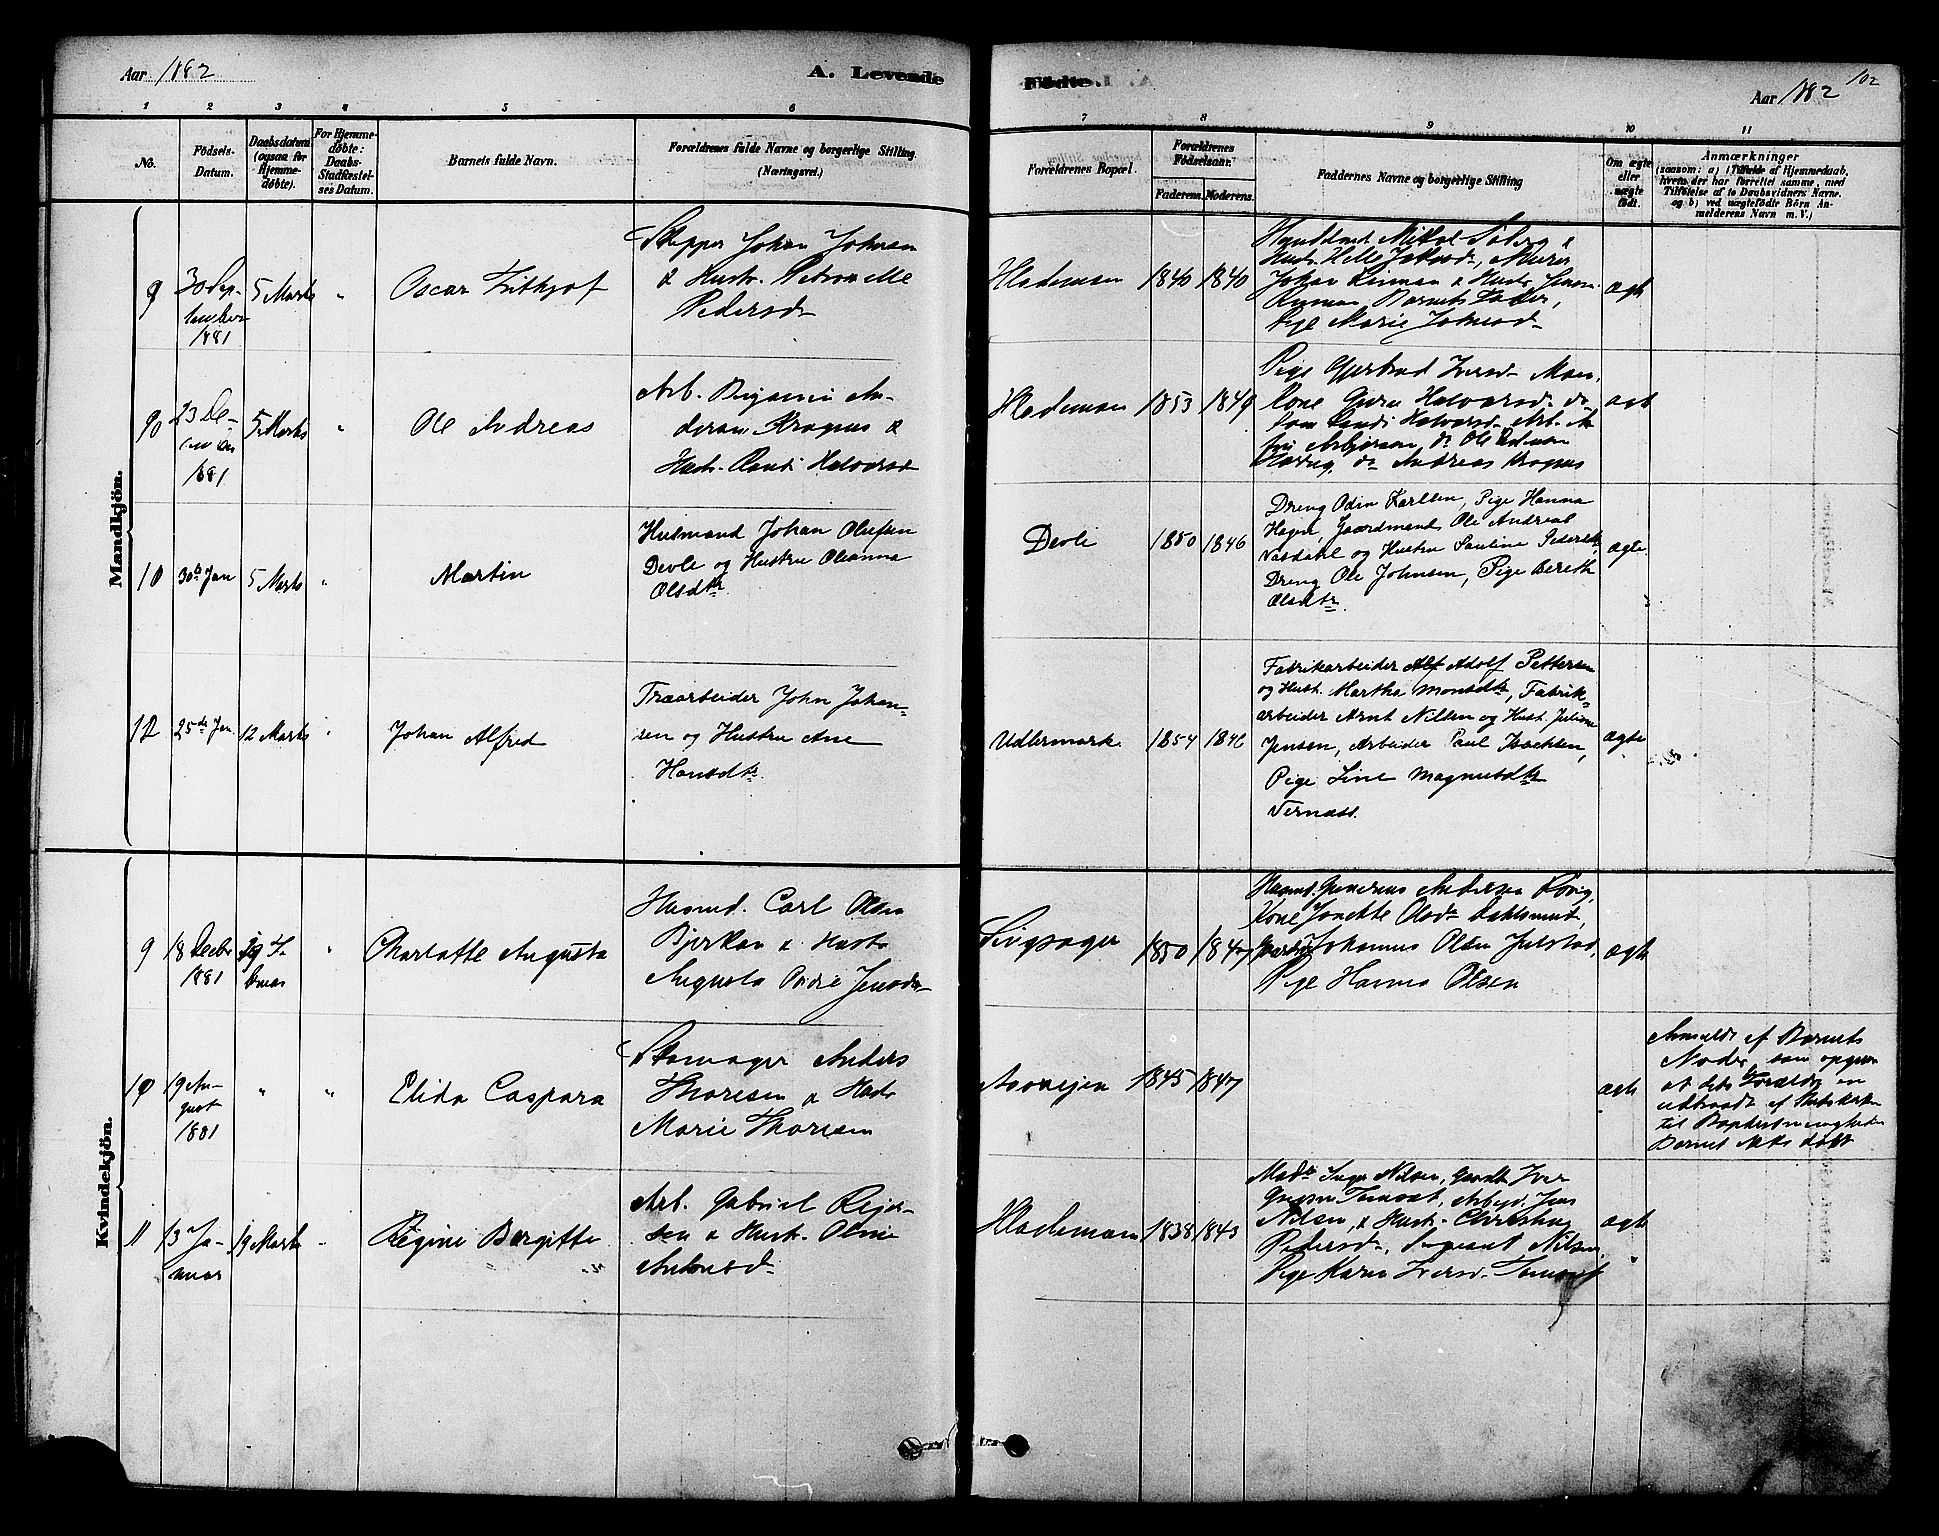 Aar 1882
A. Levende
Fødte.
102
Aar 1882
1 2 3 4 5 6 7 8 9 10 11
No.
Fødsels-
Datum.
Daabsdatum
(ogsaa for
Hjemme-
døbte).
For Hjemme-
døbte:
Daabs-
Stadfæstel-
ses Datum.
Barnets fulde Navn.
Forældrenes fulde Navne og borgerlige Stilling
(Næringsvei.)
Forældrenes Bopæl.
Forældrenes
Fødselsaar.
Faderens. Moderens.
Faddernes Navne og borgerlige Stilling
Om ægte
eller
uægte
født.
Anmærkninger
(saasom: a) i Tilfælde af Hjemmedaab,
hvem der har forrettet samme, med
Tilføielse af to Daabsvidners Navne.
og b) ved uægtefødte Børn An-
melderens Navn m. V.)
Mandkjön.
9
30 Sep-
tember
1881
5 Marts
"
Oscar Frithjof
Skipper Johan Johnsen
& Hustr. Petronelle
Pedersd
Hlademoen
1840
1840
Mikal
Johan Linman & Hustr
Barnets Fader,
Pige Marie Johnsd
ægte
90
23 De-
1881
5 Marts
"
Ole Andreas
Arb. Benjamin An-
dersen Kragnes &
Hustr. Randi Halvorsd
Hlademoen
1853
1849
Pige Gjertrud Iversd
Kone Guru Halvorsd do
Randi Halvorsd Arb.
Arbjørnsen, do Ole
do Andreas Kragnes
ægt
10
30te Jan
5 Marts
"
Martin
Husmand Johan Olufsen
Devle og Hustru Oleanna
Olsdtr
Devle
1850
1846
Dreng Odin Karlsen, Pige Hanna
Hagen, Gaardmand Ole Andreas
og Hustru Pauline Pedersdtr,
Dreng Ole Johnsen, Pige Bereth
Olsdtr
ægte
12
25de Jan
12 Marts
"
Johan Alfred
Træarbeider John Johan-
sen og Hustru Ane
Hansdtr.
Udlermark
1854
1846
Fabrikarbeider Adolf Pettersen
og Hust. Martha Monsdtr, Fabrik-
arbeider Arnt Nilsen og Hust. Juliane
Jensen, Arbeider Paul Isachsen,
Pige Line Magnusdtr
Vernæss.
ægte
Kvindekjön.
9
18 Decbr
1881
19 Fe
bruar
"
Charlotte Augusta
Husmd. Carl Olsen
Bjerkan & Hustr
Augusta Jensdr
1850
1847
Husmd. Andersen
Kone Jonette Olsdr Dahlsmint,
Johannes Olsen Julstad,
Pige Hanna Olsen
ægte
10
19 Au-
gust
1881
"
"
Elida Caspara
Skomager Anders
Thoresen & Hustr
Marie Thoresen
1845
1847
ægte
Anmeldt af Barnets
Moder, som opgiver
at dets Forældre er
udtraadt af Statskirken
til Baptistmenigheden
Barnet ikke døbt
11
13 Ja-
nuar
19 Marts
"
Regine Bergitte
Arb. Gabriel Reier-
sen & Hustr. Oline
Antonsd
Hlademoen
1838
1843
Inger Nilsen, Iver
Jens
Nilsen, & Hustr.
Pedersdr, Sergeant Nilsen
Pige Karen Iversd
ægte
"